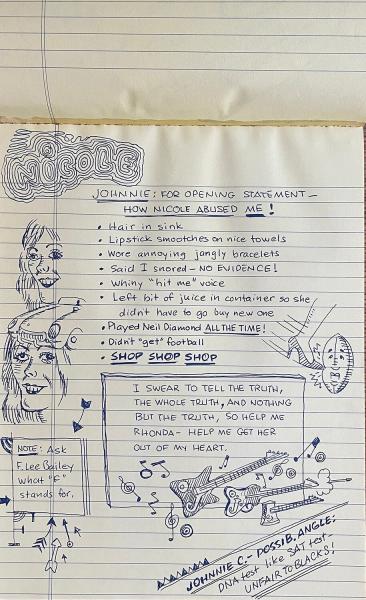 NICOLE
JOHNNIE: FOR OPENING STATEMENT—
HOW NICOLE ABUSED ME!
• Hair in sink
• Lipstick smootches on nice towels
• Wore annoying jangly bracelets
• Said I snored – NO EVIDENCE!
• Whiny "hit me" voice
• Left bit of juice in container so she
didnt have to go buy new one
• Played Neil Diamond ALL THE TIME!
• Didn't "get" football
• SHOP SHOP SHOP
I SWEAR TO TELL THE TRUTH,
THE WHOLE TRUTH, AND NOTHING
BUT THE TRUTH, SO HELP ME
RHONDA – HELP ME GET HER
OUT OF MY HEART.
NOTE: Ask
F. Lee Bailey
what "F"
stands for.
JOHNNIE C. – POSSIB. ANGLE:
DNA test like SAT test –
UNFAIR TO BLACKS!